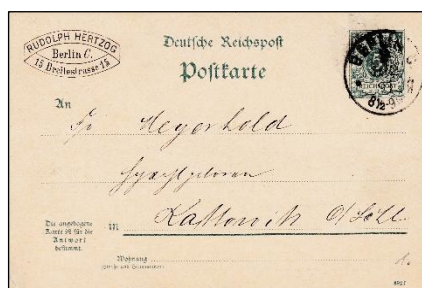 RUDOLPH HERTZOG
Berlin C.
15 Breitestrasse 15
Deutsche Reichspost
Postkarte
BERLIN C
8½-9
An
Fr Meyerhold
in Kattowitz O/Schl.
Die angebogene
Karte ist für die
Antwort
bestimmt.
Wohnung
(Straße und Hausnummer)